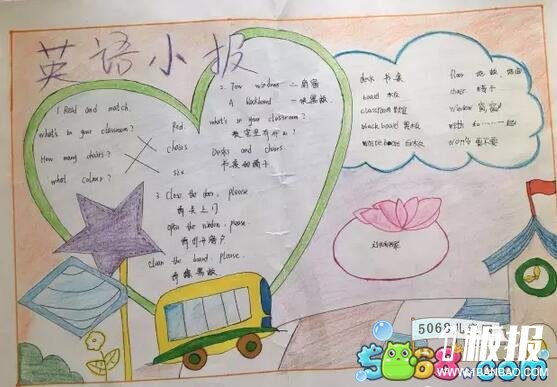 英语小报
1. Read and match.
what's in your classroom?
How many chairs?
what colour?
Red.
chairs
six
2. Tow windows 二窗窗
A blackboard 一块黑板
what's in your classroom?
教室里有什么?
Desks and chairs.
书桌和椅子
3. Close the door, please
请关上门
open the window, please.
请打开窗户
clean the board, please.
请擦黑板
desk 书桌
board 木板
classroom 教室
black board 黑板
floor 地板, 地面
chair 椅子
window 窗户
with 和……一起
5068儿
极报
5068.com
WWW.41BANBAO.COM